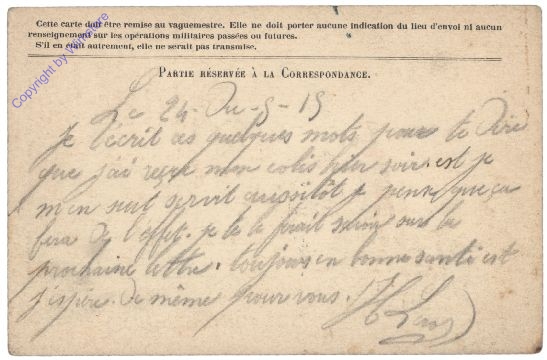 Cette carte doit être remise au vaguemestre. Elle ne doit porter aucune indication du lieu d'envoi ni aucun
renseignement sur les opérations militaires passées ou futures.
S'il en était autrement, elle ne serait pas transmise.
PARTIE RÉSERVÉE À LA CORRESPONDANCE.
Le 24 Du 15
Je t'ecrit ces quelques mots pour te Dire
que j'ai reçue mon colis hier soir. est je
m'en suit servit aussitôt je pense que ça
fera De l'effet. je te le ferait savoir sur la
prochaine lettre. toujours en bonne santé est
j'espère. De même pour vous.
Copyright by